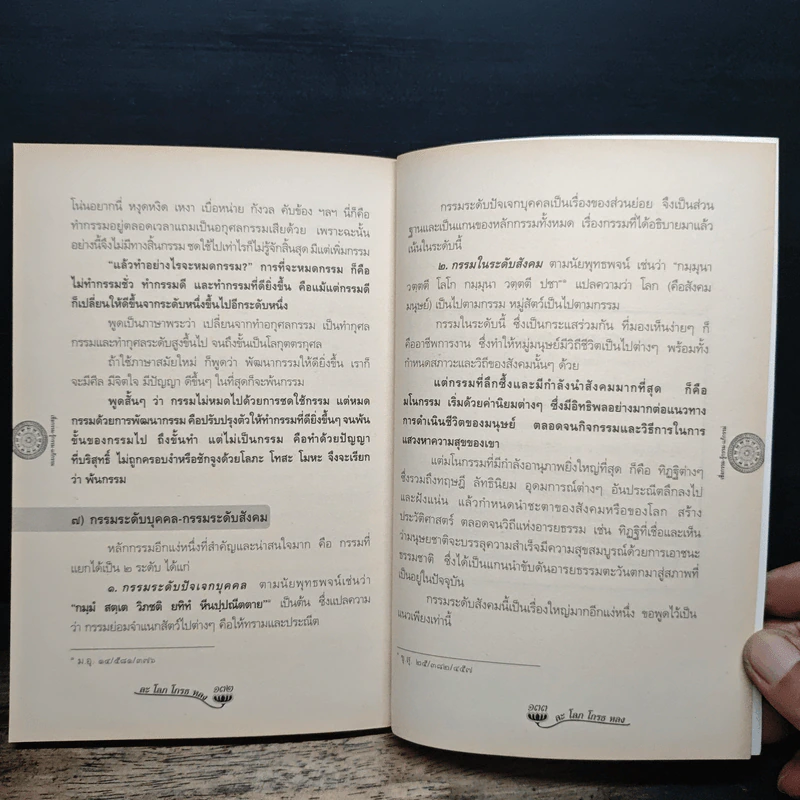 โน่นอยากนี่ หงุดหงิด เหงา เบื่อหน่าย กังวล คับข้อง ฯลฯ นี่ก็คือ
ทำกรรมอยู่ตลอดเวลาแถมเป็นอกุศลกรรมเสียด้วย เพราะฉะนั้น
อย่างนี้จึงไม่มีทางสิ้นกรรม ชดใช้ไปเท่าไรก็ไม่รู้จักสิ้นสุด มีแต่เพิ่มกรรม
"แล้วทำอย่างไรจะหมดกรรม?" การที่จะหมดกรรม ก็คือ
ไม่ทำกรรมชั่ว ทำกรรมดี และทำกรรมที่ดียิ่งขึ้น คือแม้แต่กรรมดี
ก็เปลี่ยนให้ดีขึ้นจากระดับหนึ่งขึ้นไปอีกระดับหนึ่ง
พูดเป็นภาษาพระว่า เปลี่ยนจากทำอกุศลกรรม เป็นทำกุศล
กรรมและทำกุศลระดับสูงขึ้นไป จนถึงขั้นเป็นโลกุตตรกุศล
ถ้าใช้ภาษาสมัยใหม่ ก็พูดว่า พัฒนากรรมให้ดียิ่งขึ้น เราก็
จะมีศีล มีจิตใจ มีปัญญา ดีขึ้นๆ ในที่สุดก็จะพ้นกรรม
พูดสั้นๆ ว่า กรรมไม่หมดไปด้วยการชดใช้กรรม แต่หมด
กรรมด้วยการพัฒนากรรม คือปรับปรุงตัวให้ทำกรรมที่ดียิ่งขึ้นๆ จนพ้น
ขั้นของกรรมไป ถึงขั้นทำ แต่ไม่เป็นกรรม คือทำด้วยปัญญา
ที่บริสุทธิ์ ไม่ถูกครอบงำหรือชักจูงด้วยโลภะ โทสะ โมหะ จึงจะเรียก
ว่า พ้นกรรม
๗) กรรมระดับบุคคล-กรรมระดับสังคม
หลักกรรมอีกแง่หนึ่งที่สำคัญและน่าสนใจมาก คือ กรรมที่
แยกได้เป็น ๒ ระดับ ได้แก่
๑. กรรมระดับปัจเจกบุคคล ตามนัยพุทธพจน์เช่นว่า
"กมฺมํ สตฺเต วิภชติ ยทิทํ หีนปฺปณีตตาย"* เป็นต้น ซึ่งแปลความ
ว่า กรรมย่อมจำแนกสัตว์ไปต่างๆ คือให้ทรามและประณีต
* ม.อุ. ๑๔/๕๘๑/๓๗๖
๑๓๒
ละ โลภ โกรธ หลง
กรรมระดับปัจเจกบุคคลเป็นเรื่องของส่วนย่อย จึงเป็นส่วน
ฐานและเป็นแกนของหลักกรรมทั้งหมด เรื่องกรรมที่ได้อธิบายมาแล้ว
เน้นในระดับนี้
๒. กรรมในระดับสังคม ตามนัยพุทธพจน์ เช่นว่า "กมฺมุนา
วตฺตตี โลโก กมฺมุนา วตฺตตี ปชา"* แปลความว่า โลก (คือสังคม
มนุษย์) เป็นไปตามกรรม หมู่สัตว์เป็นไปตามกรรม
กรรมในระดับนี้ ซึ่งเป็นกระแสร่วมกัน ที่มองเห็นง่ายๆ ก็
คืออาชีพการงาน ซึ่งทำให้หมู่มนุษย์มีวิถีชีวิตเป็นไปต่างๆ พร้อมทั้ง
กำหนดสภาวะและวิถีของสังคมนั้นๆ ด้วย
แต่กรรมที่ลึกซึ้งและมีกำลังนำสังคมมากที่สุด ก็คือ
มโนกรรม เริ่มด้วยค่านิยมต่างๆ ซึ่งมีอิทธิพลอย่างมากต่อแนวทาง
การดำเนินชีวิตของมนุษย์ ตลอดจนกิจกรรมและวิธีการในการ
แสวงหาความสุขของเขา
แต่มโนกรรมที่มีกำลังอานุภาพยิ่งใหญ่ที่สุด ก็คือ ทิฏฐิต่างๆ
ซึ่งรวมถึงทฤษฎี ลัทธินิยม อุดมการณ์ต่างๆ อันประณีตลึกลงไป
และฝังแน่น แล้วกำหนดนำชะตาของสังคมหรือของโลก สร้าง
ประวัติศาสตร์ ตลอดจนวิถีแห่งอารยธรรม เช่น ทิฏฐิที่เชื่อและเห็น
ว่ามนุษยชาติจะบรรลุความสำเร็จมีความสุขสมบูรณ์ด้วยการเอาชนะ
ธรรมชาติ ซึ่งได้เป็นแกนนำขับดันอารยธรรมตะวันตกมาสู่สภาพที่
เป็นอยู่ในปัจจุบัน
กรรมระดับสังคมนี้เป็นเรื่องใหญ่มากอีกแง่หนึ่ง ขอพูดไว้เป็น
แนวเพียงเท่านี้
* ขุ.สุ. ๒๕/๓๘๒/๔๕๗
๑๓๓
ละ โลภ โกรธ หลง